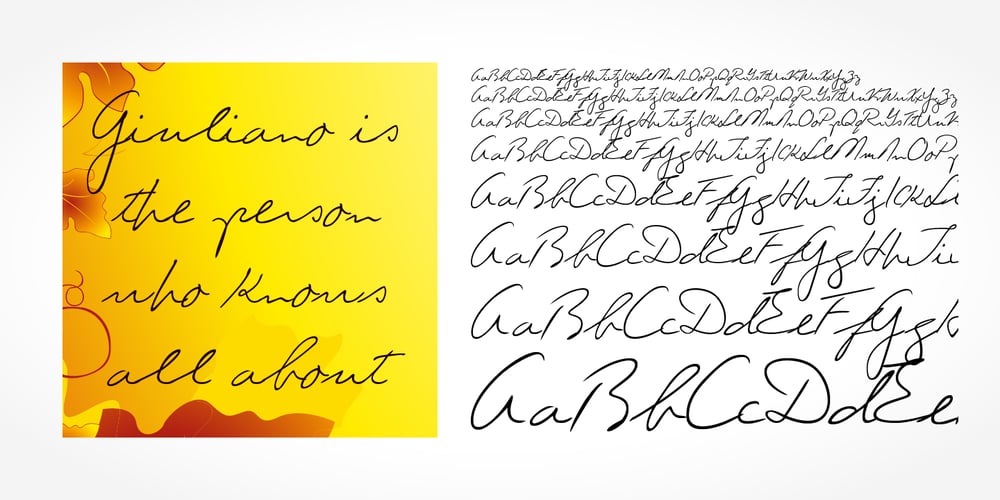 Giuliano is
the person
who knows
all about
AaBbCcDdEeFfGgHhIiJjKkLlMmNnOoPpQqRrSsTtUuVvWwXxYyZz
AaBbCcDdEeFfGgHhIiJjKkLlMmNnOoPpQqRrSsTtUuVvWwXxYyZz
AaBbCcDdEeFfGgHhIiJjKkLlMmNnOoPpQqRrSsTtUuV
AaBbCcDdEeFfGgHhIiJjKkLlMmNnOoPp
AaBbCcDdEeFfGgHhIiJjKkL
AaBbCcDdEeFfGgHhIi
AaBbCcDdEeFfGg
AaBbCcDdEe